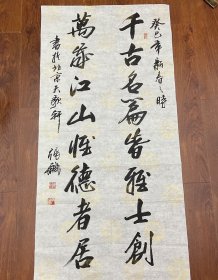 癸巳年新春之時
千古名篇皆雅士創
萬家江山惟德者居
書於北京天